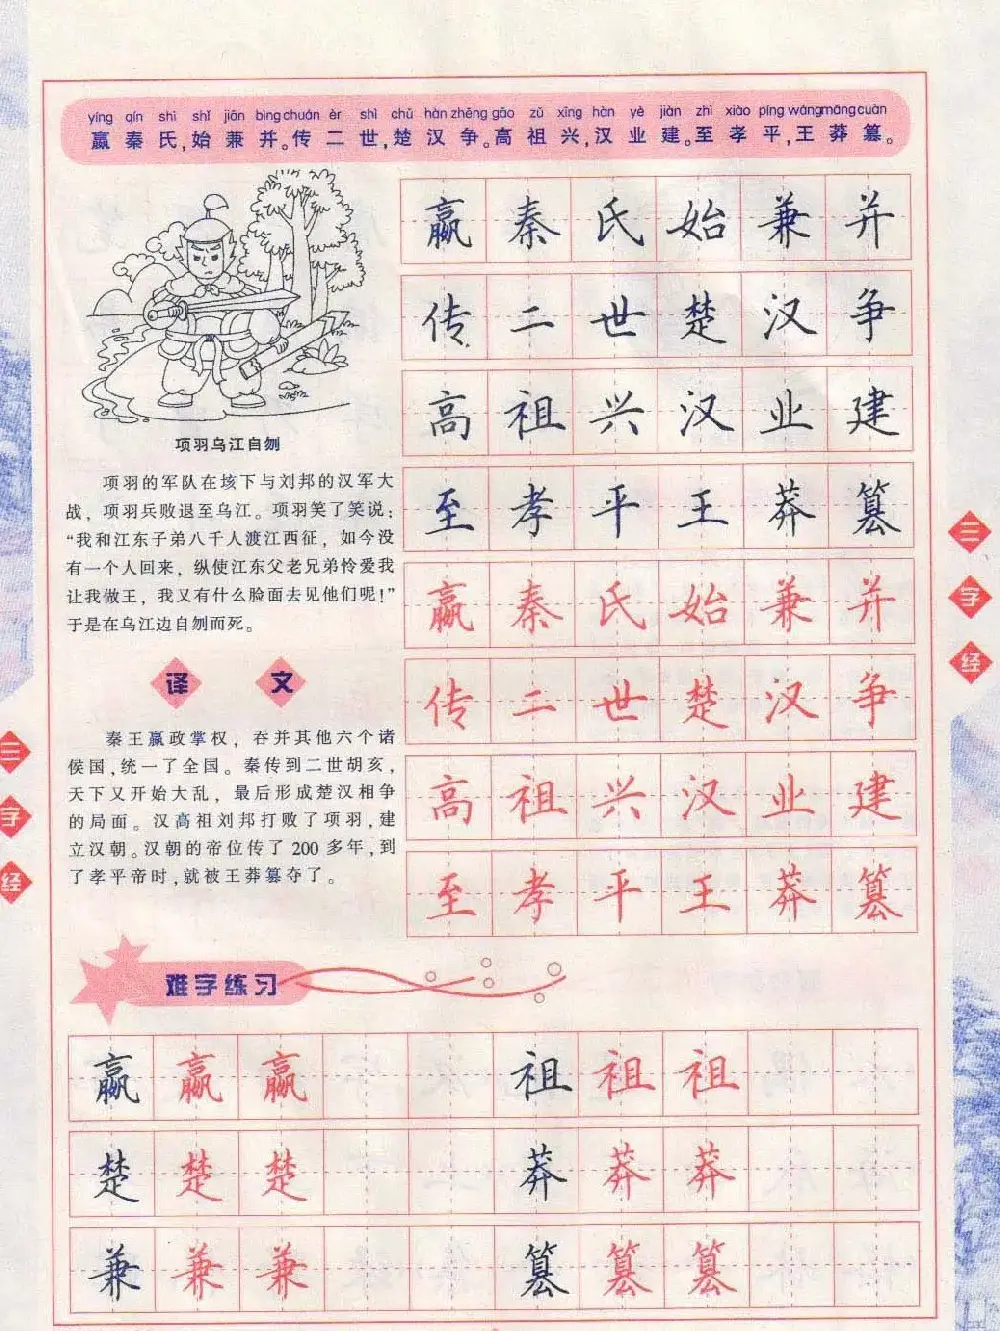 yíng qín shì shǐ jiān bìng chuán èr shì chǔ hàn zhēng gāo zǔ xīng hàn yè jiàn zhì xiào píng wáng mǎng cuàn
嬴秦氏,始兼并。传二世,楚汉争。高祖兴,汉业建。至孝平,王莽篡。
项羽乌江自刎
项羽的军队在垓下与刘邦的汉军大
战，项羽兵败退至乌江。项羽笑了笑说：
“我和江东子弟八千人渡江西征，如今没
有一个人回来，纵使江东父老兄弟怜爱我
让我做王，我又有什么脸面去见他们呢！”
于是在乌江边自刎而死。
译文
秦王嬴政掌权，吞并其他六个诸
侯国,统一了全国。秦传到二世胡亥，
天下又开始大乱，最后形成楚汉相争
的局面。汉高祖刘邦打败了项羽,建
立汉朝。汉朝的帝位传了 200 多年,到
了孝平帝时,就被王莽篡夺了。
嬴秦氏始兼并
传二世楚汉争
高祖兴汉业建
至孝平王莽篡
嬴秦氏始兼并
传二世楚汉争
高祖兴汉业建
至孝平王莽篡
难字练习
嬴嬴嬴 祖祖祖
楚楚楚 莽莽莽
兼兼兼 篡篡篡
三字经
三字经